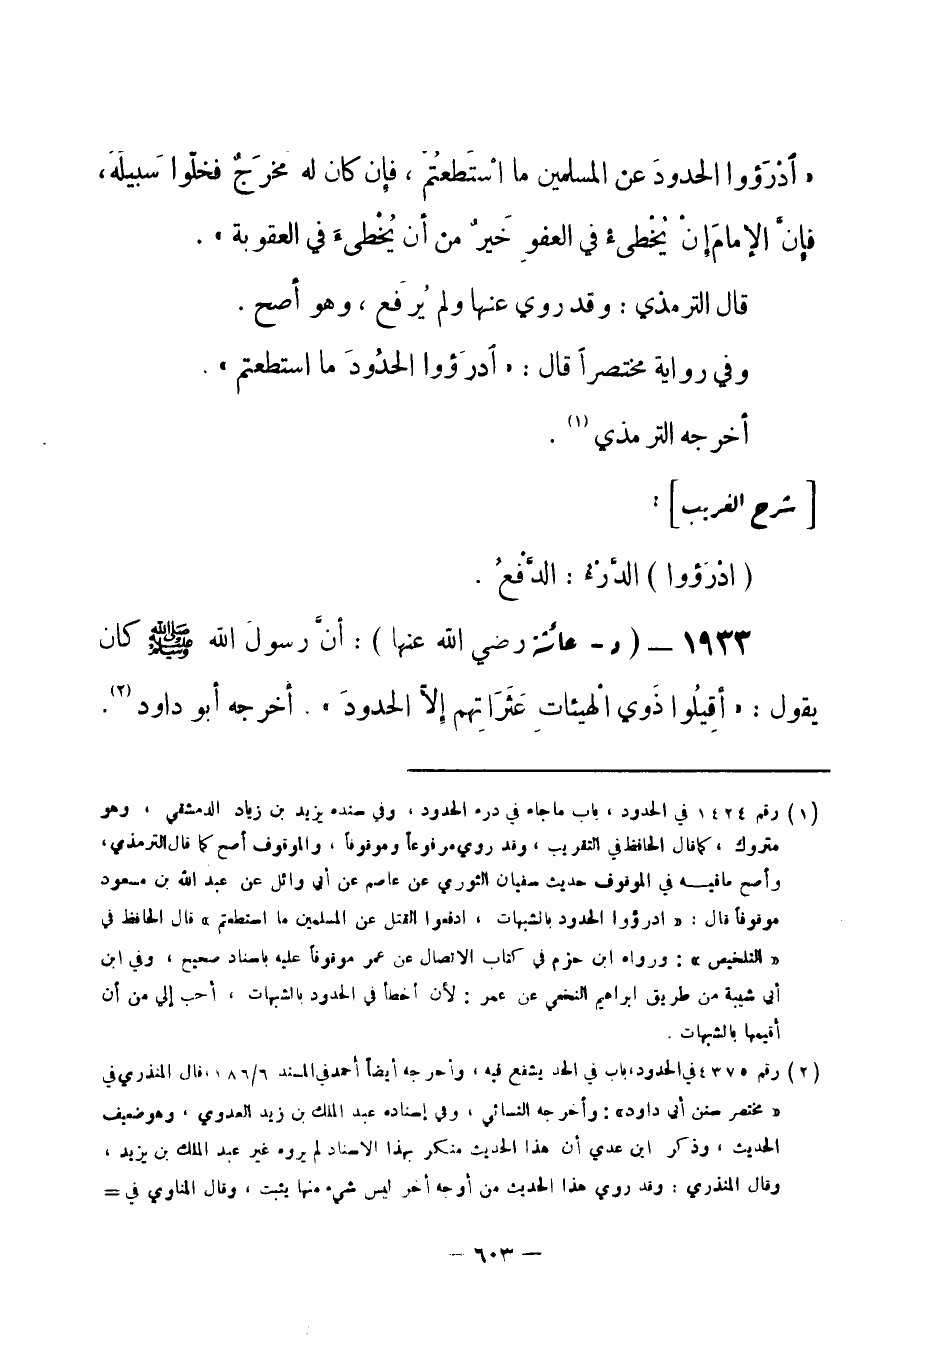 « أدْرَؤوا الحدودَ عن المسلمين ما اسْتَطعتُم ، فإن كان له مخرَجٌ فخلّوا سَبيلَه،
فإنَّ الإمامَ إنْ يُخْطىءْ في العفوِ خَيرٌ من أن يُخْطىءَ في العقوبة » .
قال الترمذي : وقد روي عنها ولم يُرفَع ، وهو أصح .
وفي رواية مختصراً قال : « أدرَؤوا الحدُودَ ما استطعتم » .
أخرجه الترمذي (١) .
[ شرح الغريب ] :
( ادْرَؤوا ) الدَّرْءُ : الدَّفْعُ .
١٩٣٣ — ( د - عائشة رضي الله عنها ) : أنَّ رسولَ الله ﷺ كان
يقول : « أقيلُوا ذَوي الْهيئاتِ عَثَرَاتِهم إلاَّ الحدودَ » . أخرجه أبو داود (٢).
(١) رقم ١٤٢٤ في الحدود ، باب ماجاء في درء الحدود ، وفي سنده يزيد بن زياد الدمشقي ، وهو
متروك ، كما قال الحافظ في التقريب ، وقد روي مرفوعاً وموقوفاً ، والموقوف أصح كما قال الترمذي،
وأصح مافيـــه في الموقوف حديث سفيان الثوري عن عاصم عن أبي وائل عن عبد الله بن مسعود
موقوفاً قال : « ادرؤوا الحدود بالشبهات ، ادفعوا القتل عن المسلمين ما استطعتم » قال الحافظ في
« التلخيص » : ورواه ابن حزم في كتاب الاتصال عن عمر موقوفاً عليه باسناد صحيح ، وفي ابن
أبي شيبة من طريق ابراهيم النخعي عن عمر : لأن أخطأ في الحدود بالشبهات ، أحب إلي من أن
أقيمها بالشبهات .
(٢) رقم ٤٣٧٥ في الحدود، باب في الحد يشفع فيه ، وأخرجه أيضاً أحمد في المسند ١٨٦/٦، قال المنذري في
« مختصر سنن أبي داود» : وأخرجه النسائي ، وفي إسناده عبد الملك بن زيد العدوي ، وهو ضعيف
الحديث ، وذكر ابن عدي أن هذا الحديث منكر بهذا الاسناد لم يروه غير عبد الملك بن يزيد ،
وقال المنذري : وقد روي هذا الحديث من أوجه أخر ليس شيء منها يثبت ، وقال المناوي في =
— ٦٠٣ —